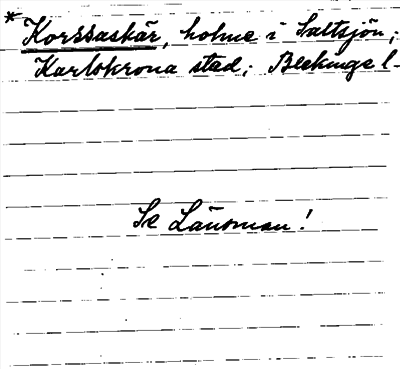 * Korssaskär, holme i Saltsjön;
Karlskrona stad; Blekinge l.
Se Länsman!